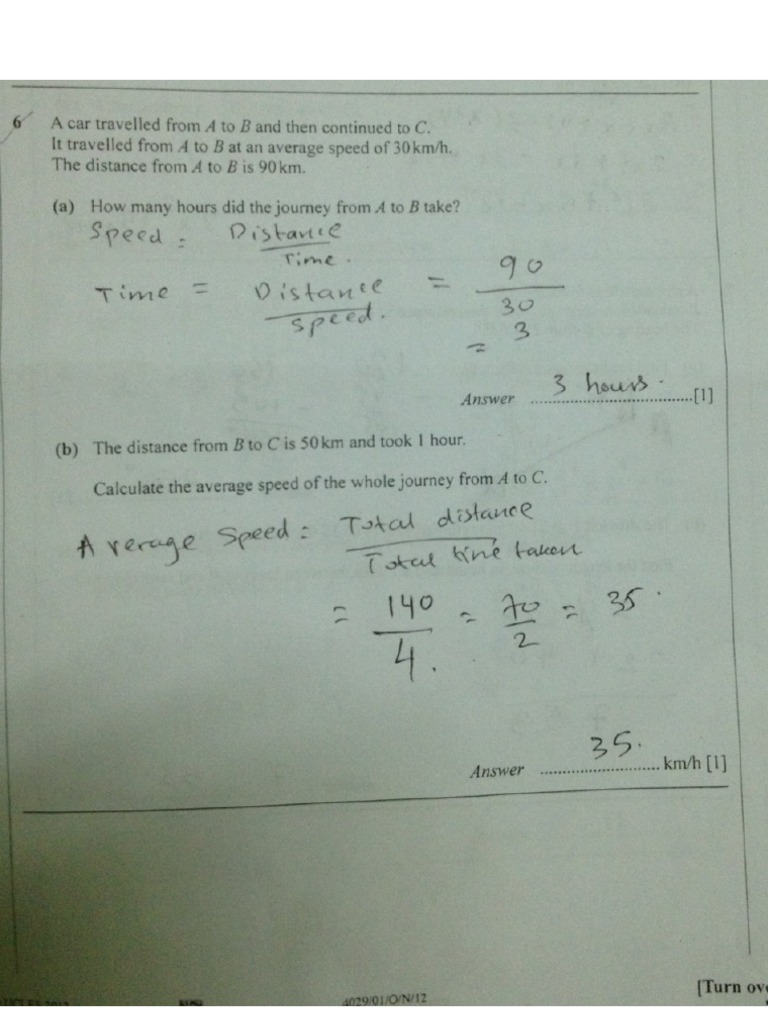 6 A car travelled from A to B and then continued to C.
It travelled from A to B at an average speed of 30 km/h.
The distance from A to B is 90 km.
(a) How many hours did the journey from A to B take?
Speed = Distance
Time.
Time = Distance = 90
Speed. 30
= 3
Answer 3 hours. [1]
(b) The distance from B to C is 50 km and took 1 hour.
Calculate the average speed of the whole journey from A to C.
Average Speed = Total distance
Total time taken
= 140 = 70 = 35.
4. 2
Answer 35. km/h [1]
[Turn ove
4029/01/O/N/12